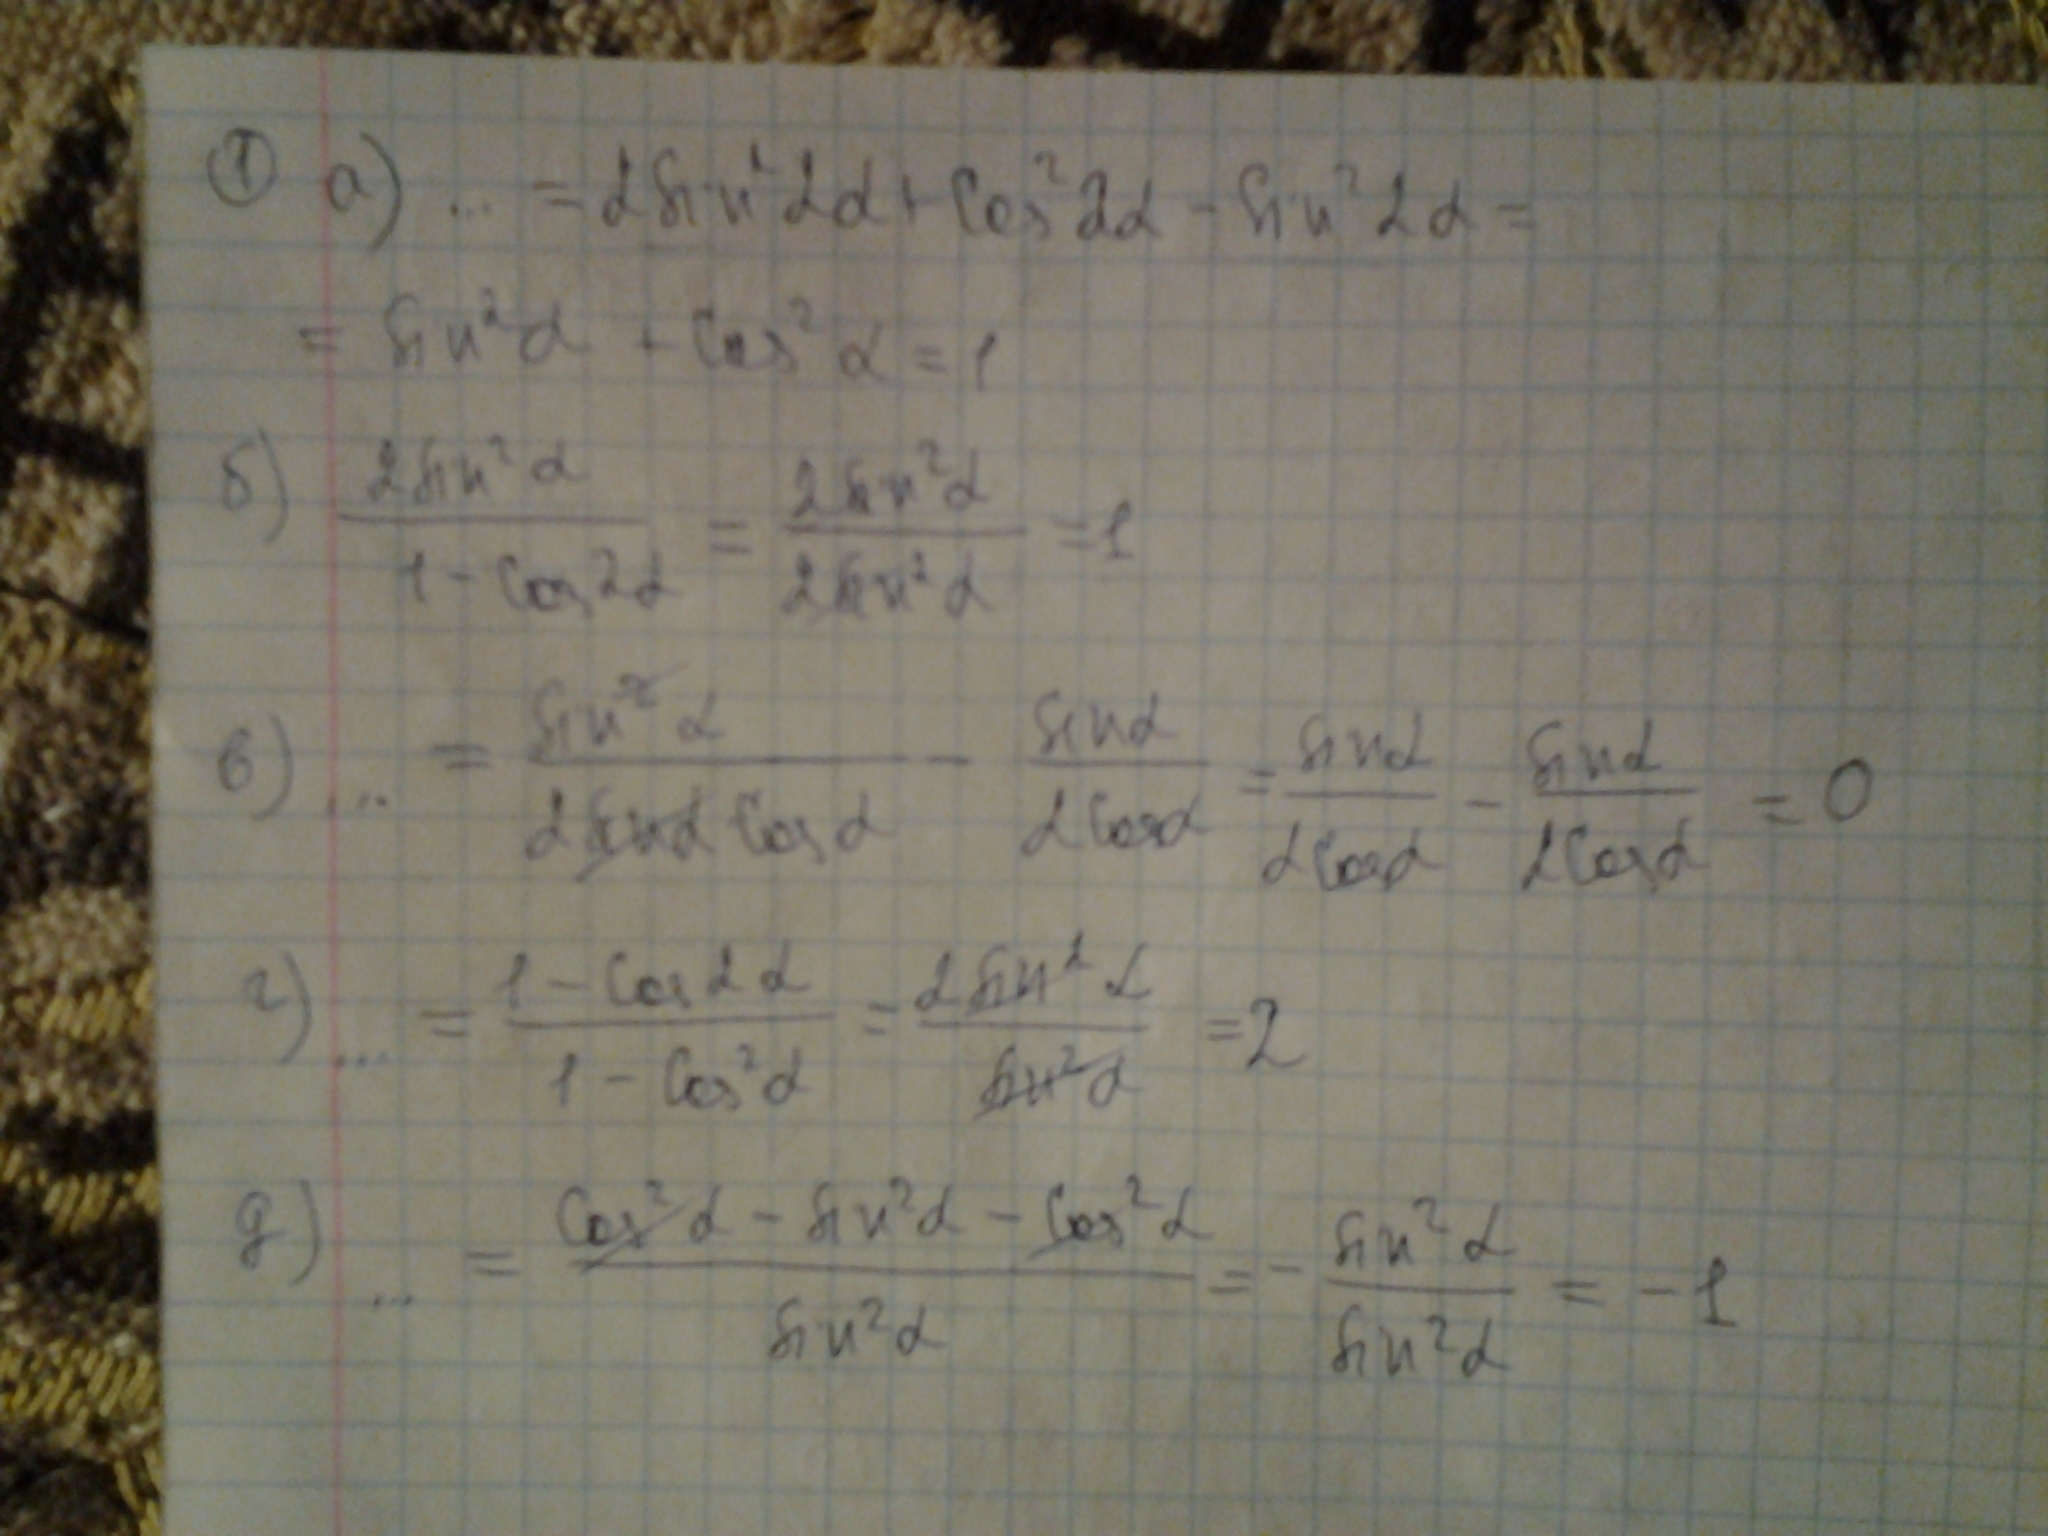 ① а) ... = 2sin²2α + cos²2α - sin²2α =
= sin²α + cos²α = 1
б) 2sin²α / 1 - cos2α = 2sin²α / 2sin²α = 1
в) ... = sin²α / 2sinα cosα - sinα / 2cosα = sinα / 2cosα - sinα / 2cosα = 0
г) ... = 1 - cos2α / 1 - cos²α = 2sin²α / sin²α = 2
д) ... = cos²α - sin²α - cos²α / sin²α = - sin²α / sin²α = -1